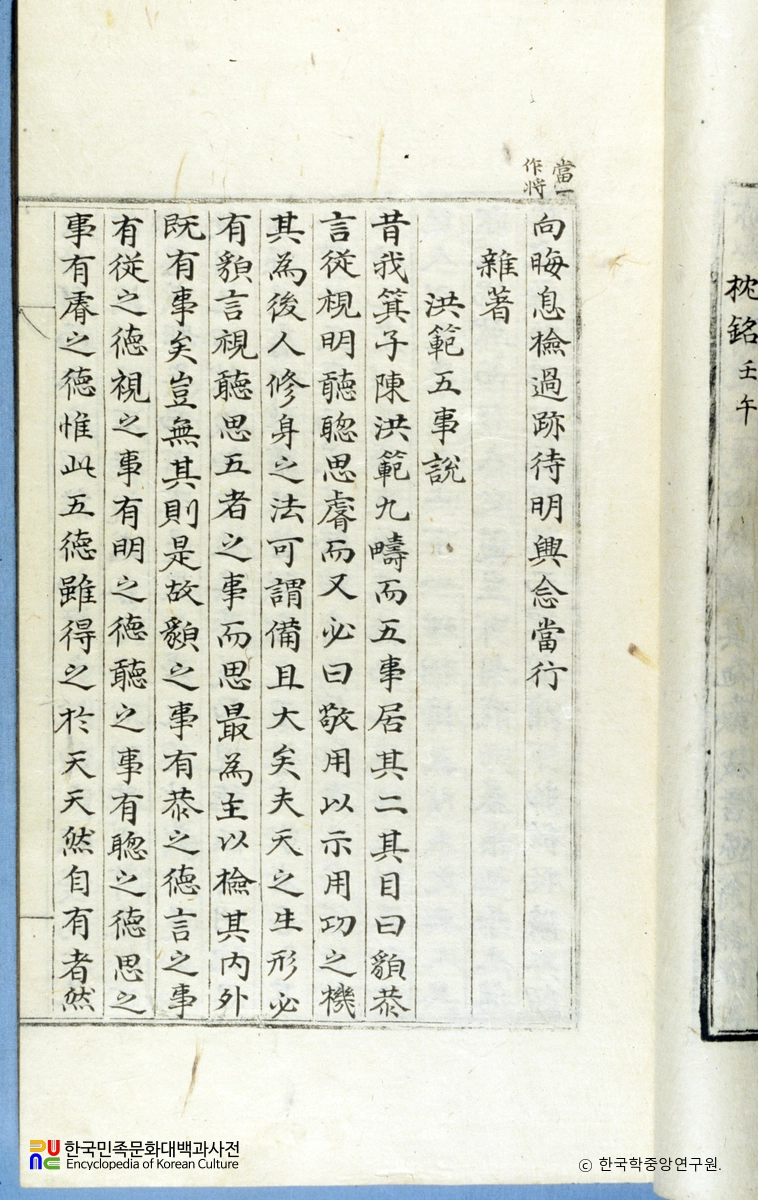 枕銘 壬午
當一
作將
向晦息檢過跡待明興念當行
雜著
洪範五事說
昔我箕子陳洪範九疇而五事居其二其目曰貌恭
言從視明聽聰思睿而又必曰敬用以示用功之機
其為後人修身之法可謂備且大矣夫天之生形必
有貌言視聽思五者之事而思最為主以檢其內外
既有事矣豈無其則是故貌之事有恭之德言之事
有從之德視之事有明之德聽之事有聰之德思之
事有睿之德惟此五德雖得之於天天然自有者然
한국민족문화대백과사전
Encyclopedia of Korean Culture
ⓒ 한국학중앙연구원.